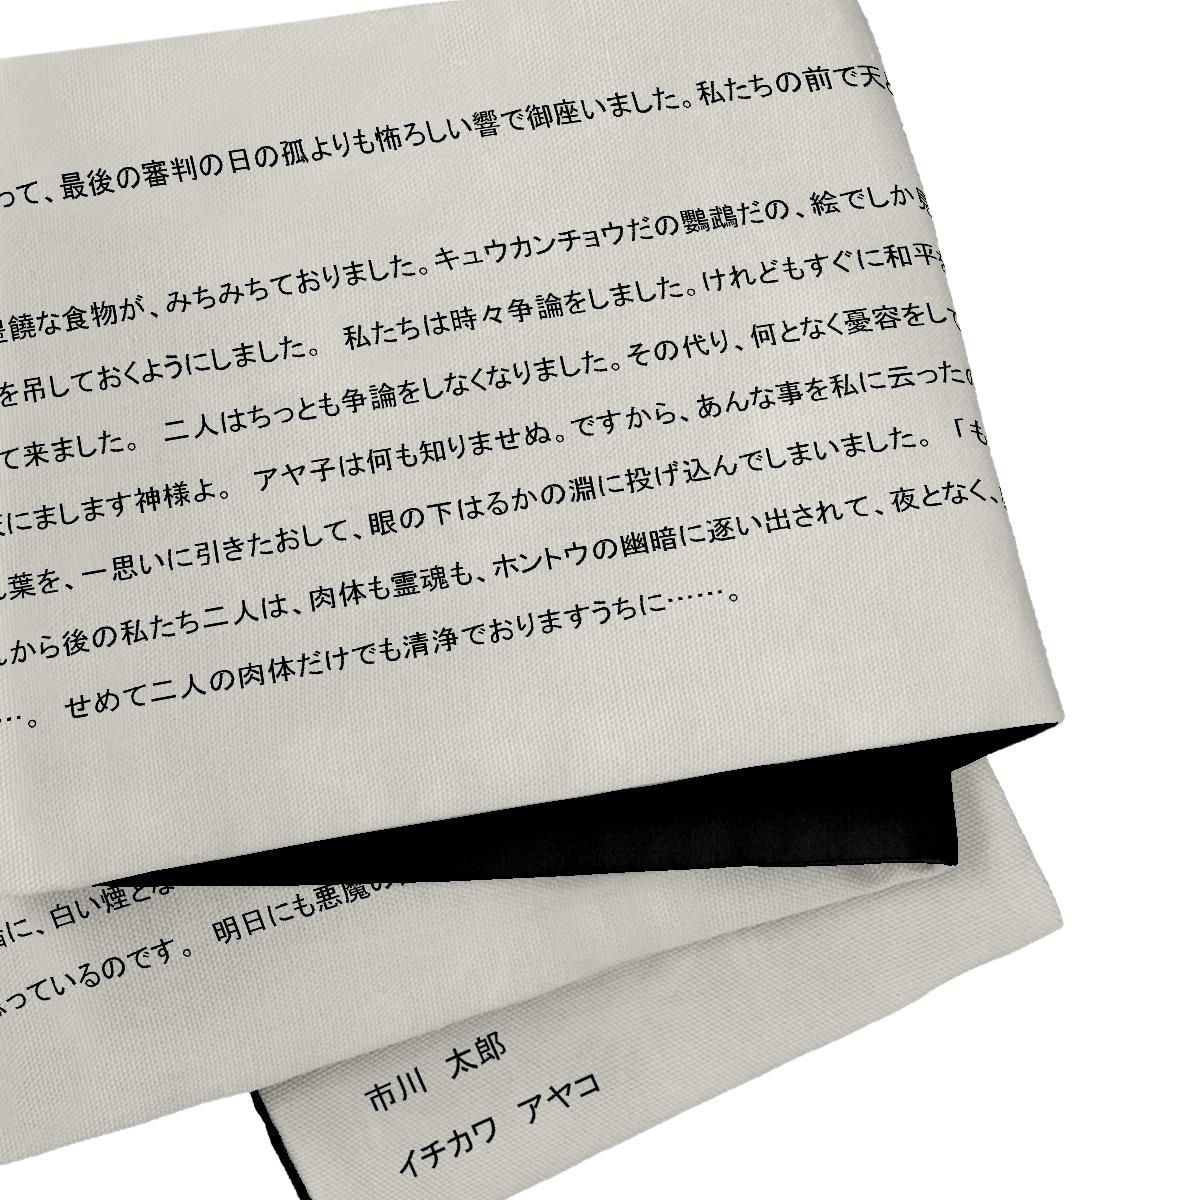 って、最後の審判の日の孤よりも怖ろしい響で御座いました。私たちの前で天
豊饒な食物が、みちみちておりました。キュウカンチョウだの鸚鵡だの、絵でしか
を吊しておくようにしました。 私たちは時々争論をしました。けれどもすぐに和平
て来ました。 二人はちっとも争論をしなくなりました。その代り、何となく憂容をし
にまします神様よ。 アヤ子は何も知りませぬ。ですから、あんな事を私に云った
葉を、一思いに引きたおして、眼の下はるかの淵に投げ込んでしまいました。 「も
から後の私たち二人は、肉体も霊魂も、ホントウの幽暗に逐い出されて、夜となく、
…。 せめて二人の肉体だけでも清浄でおりますうちに……。
に、白い煙とな
っているのです。 明日にも悪魔の
市川 太郎
イチカワ アヤコ